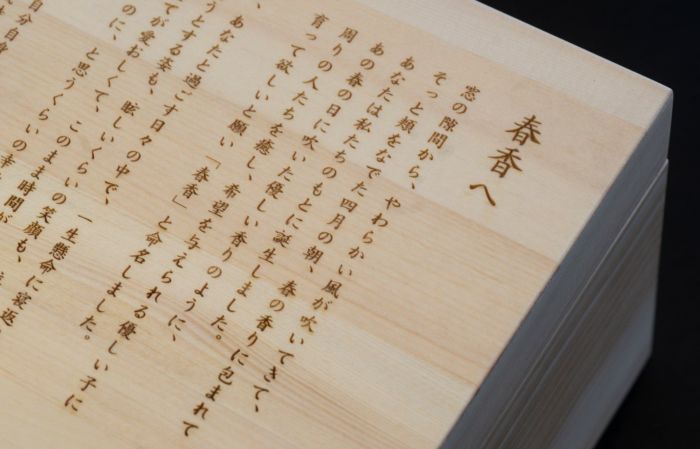 春香へ
窓の隙間から、やわらかい風が吹いてきて、
そっと頬をなでた四月の朝、春の香りに包まれて
あなたは私たちのもとに誕生しました。
あの春の日に吹いた優しい香りのように、
周りの人たちを癒し、希望を与えられる優しい子に
育って欲しいと願い「春香」と命名しました。
、
あなたと過ごす日々の中で、一生懸命に寝返
うとする姿も、眩しいくらいの笑顔も、
てが愛おしくて、このまま時間が
のに と思うくらいの
自分自身